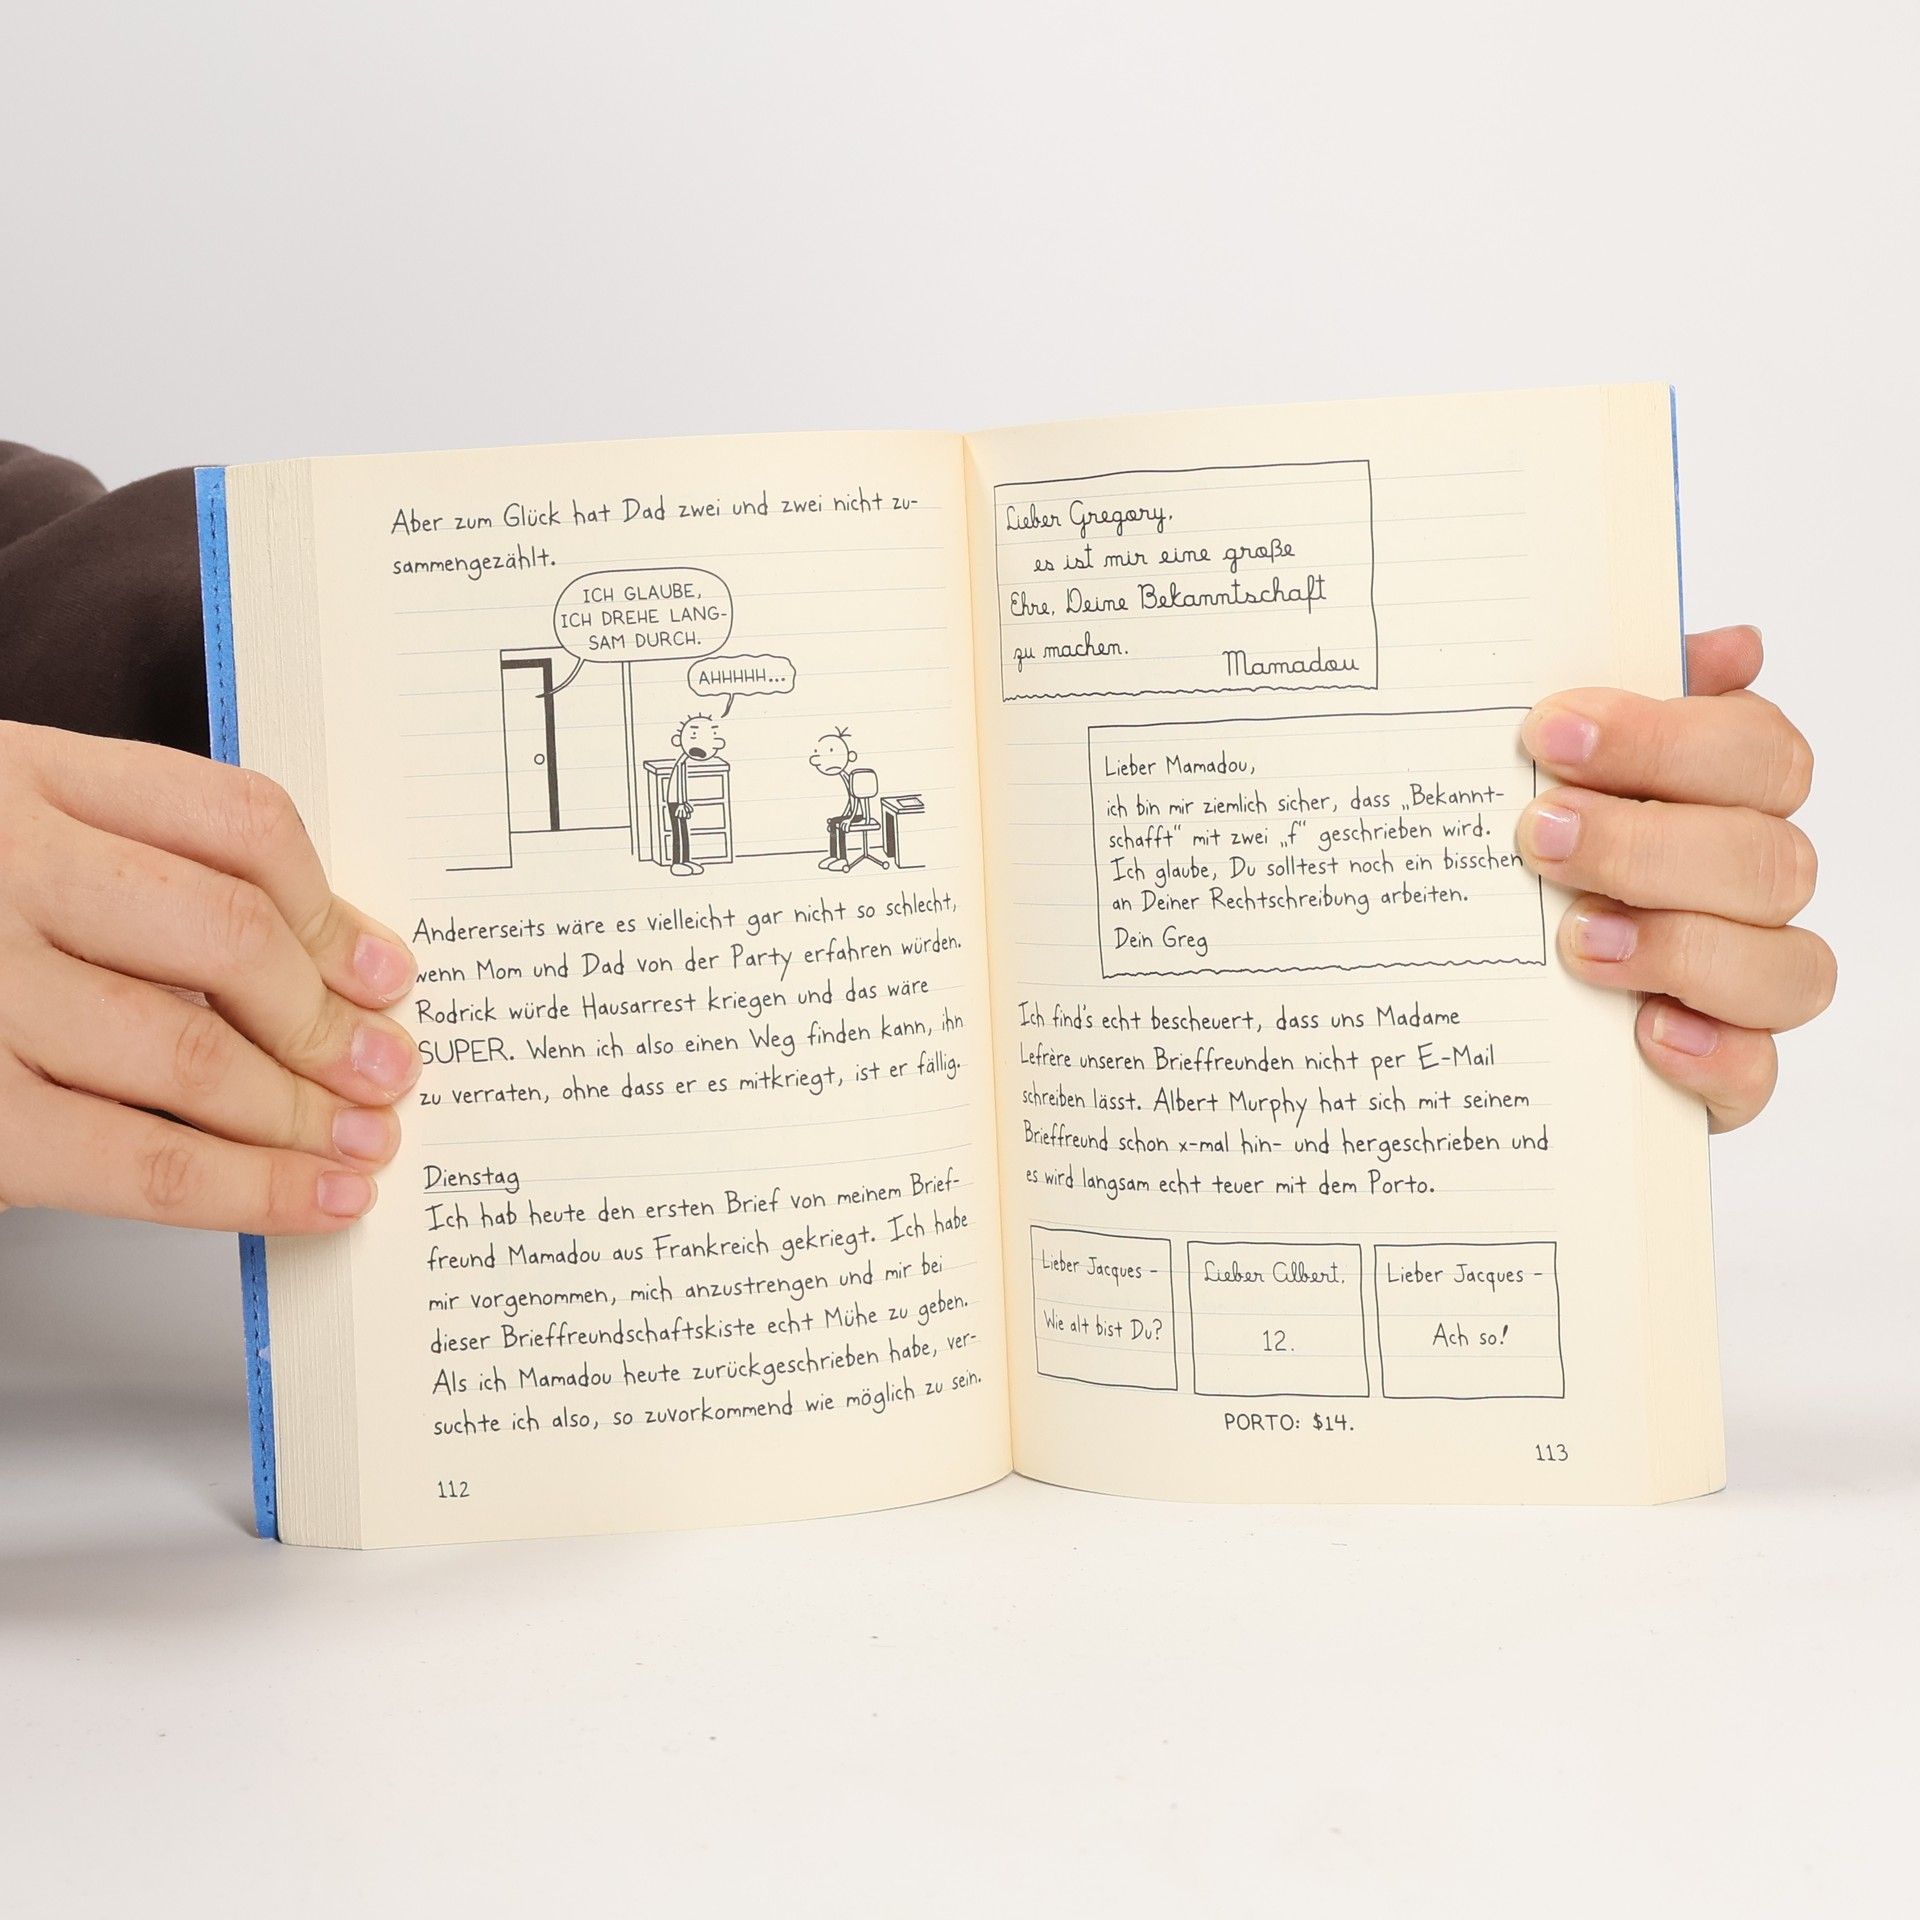 Aber zum Glück hat Dad zwei und zwei nicht zu-
sammengezählt.
ICH GLAUBE,
ICH DREHE LANG-
SAM DURCH.
AHHHHH...
Andererseits wäre es vielleicht gar nicht so schlecht,
wenn Mom und Dad von der Party erfahren würden.
Rodrick würde Hausarrest kriegen und das wäre
SUPER. Wenn ich also einen Weg finden kann, ihn
zu verraten, ohne dass er es mitkriegt, ist er fällig.
Dienstag
Ich hab heute den ersten Brief von meinem Brief-
freund Mamadou aus Frankreich gekriegt. Ich habe
mir vorgenommen, mich anzustrengen und mir bei
dieser Brieffreundschaftskiste echt Mühe zu geben.
Als ich Mamadou heute zurückgeschrieben habe, ver-
suchte ich also, so zuvorkommend wie möglich zu sein.
112
Lieber Gregory,
es ist mir eine große
Ehre, Deine Bekanntschaft
zu machen.
Mamadou
Lieber Mamadou,
ich bin mir ziemlich sicher, dass „Bekannt-
schafft" mit zwei „f" geschrieben wird.
Ich glaube, Du solltest noch ein bisschen
an Deiner Rechtschreibung arbeiten.
Dein Greg
Ich find's echt bescheuert, dass uns Madame
Lefrère unseren Brieffreunden nicht per E-Mail
schreiben lässt. Albert Murphy hat sich mit seinem
Brieffreund schon x-mal hin- und hergeschrieben und
es wird langsam echt teuer mit dem Porto.
Lieber Jacques -
Wie alt bist Du?
Lieber Albert,
12.
Lieber Jacques -
Ach so!
PORTO: $14.
113